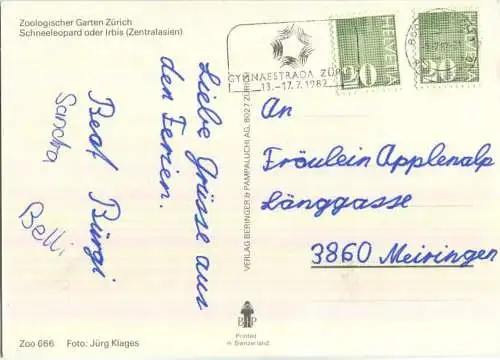 Zoologischer Garten Zürich
Schneeleopard oder Irbis (Zentralasien)
GYMNAESTRADA ZÜRI
13.–17.7.1982
HELVETIA
20
HELVETIA
20
Liebe Grüsse aus
den Ferien.
Beat Bürgi
Sandra
Belli
VERLAG BERINGER & PAMPALUCHI AG, 8027 ZÜRICH
An
Fräulein Applenalp
Länggasse
3860 Meiringen
BP
Printed
in Switzerland
Zoo 666 Foto: Jürg Klages